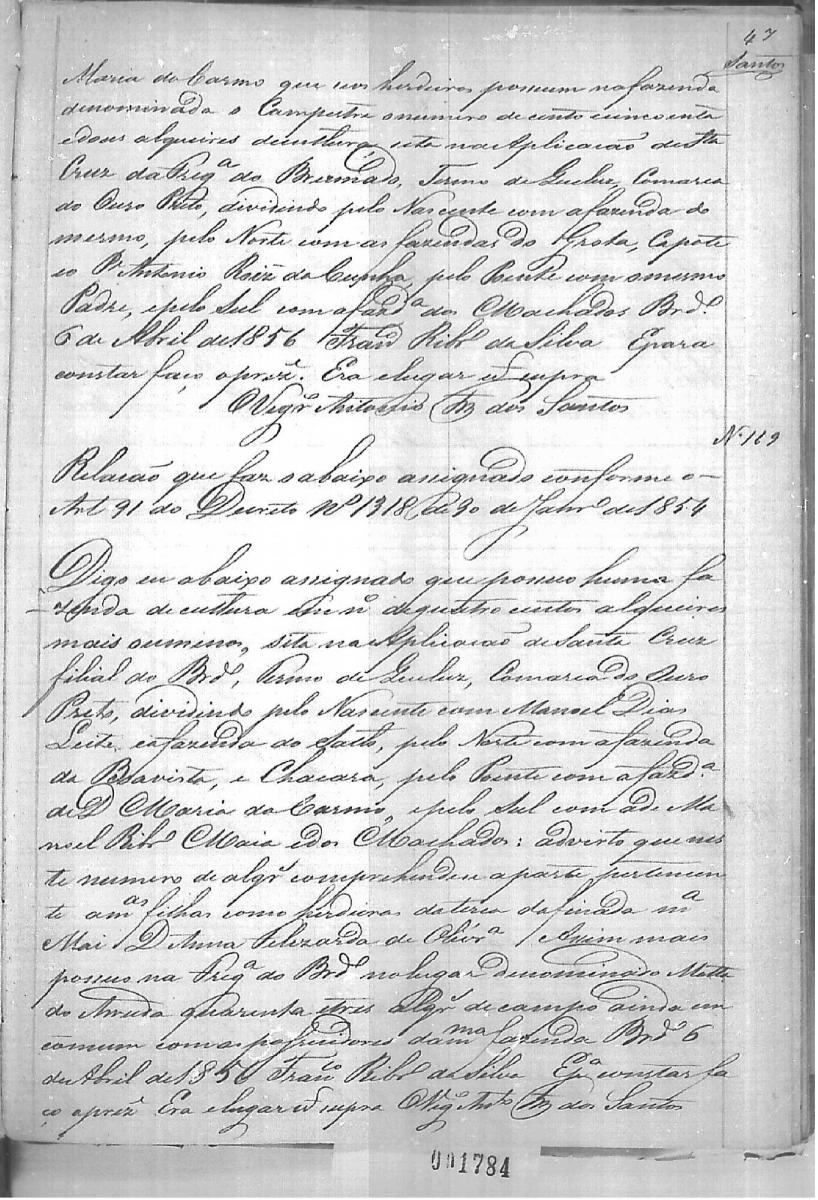 47
Santos
Maria do Carmo que seos herdeiros possuem na fazenda
denominada o Campestre o numero de cento cincoenta
e dous alqueires de cultura, sita na Aplicacão de Sta
Cruz da Freg.ª do Brumado, Termo de Queluz, Comarca
do Ouro Preto, dividindo pelo Nascente com a fazenda do
mesmo, pelo Norte com as fazendas do Grota, Capote
e o P.e Antonio Roiz da Cunha, pelo Poente com o mesmo
Padre, e pelo Sul com a fazd.ª dos Machados Brd.º
6 de Abril de 1856 Fran.co Ribr.º da Silva E para
constar faço o prez.e. Era e lugar ut supra
O Vigr.º Antonio dos Santos
N. 119
Relacão que faz o abaixo assignado conforme o
Art 91 do Decreto Nº 1318 de 30 de Janr.º de 1854
Digo eu abaixo assignado que possuo huma fa
zenda de cultura em nº de quatro centos alqueires
mais ou menos, sita na Aplicacão de Santa Cruz
filial do Brd.º, Termo de Queluz, Comarca do Ouro
Preto, dividindo pelo Nascente com Manoel Dias
Leite, e a fazenda do Salto, pelo Norte com a fazenda
da Boavista, e Chacara, pelo Poente com a fazd.ª
de D Maria do Carmo, e pelo Sul com a de Ma
noel Ribr.º Maia e dos Machados: advirto que nes
te numero de alqr.s comprehende-se a parte pertencen
te a m.as filhas como herdeiras da terca da finada m.ª
Mai D Anna Felizarda de Olivr.ª Assim mais
possuo na Freg.ª do Brd.º no lugar denominado Matta
do Arruda quarenta e tres alqr.s de campo ainda em
comum com os possuidores da m.ma fazenda Brd.º 6
de Abril de 1856 Fran.co Ribr.º da Silva E p.ª constar fa
ço o prez.e Era e lugar ut supra O Vigr.º Ant.º dos Santos
001784